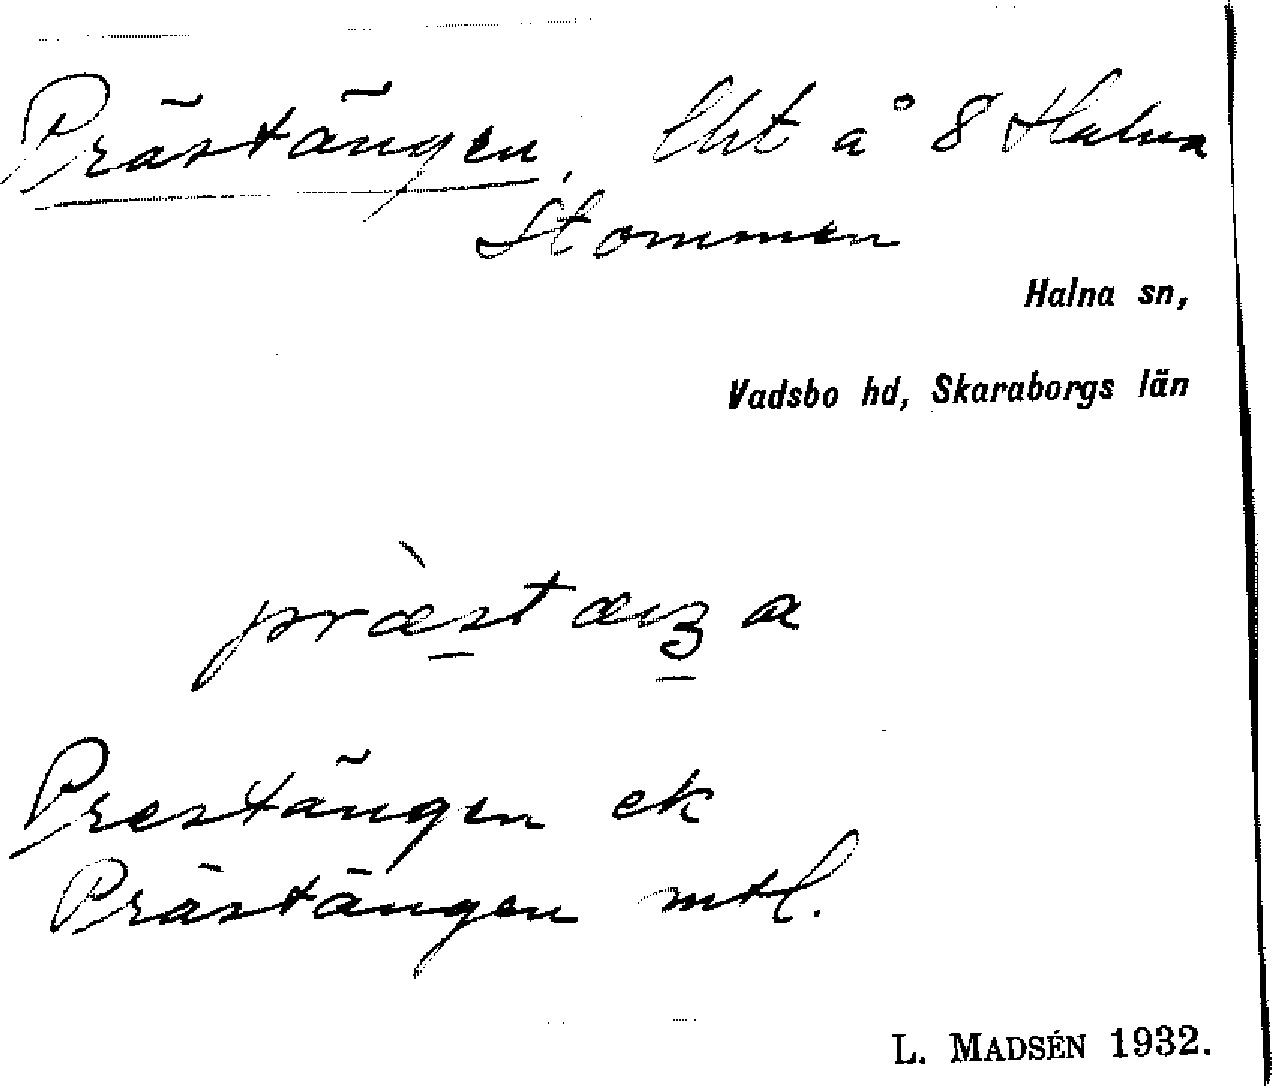 Prästängen, lht å 8 Halna
Stommen
Halna sn,
Vadsbo hd, Skaraborgs län
Prestängen ek
Prästängen mtl.
L. MADSÉN 1932.